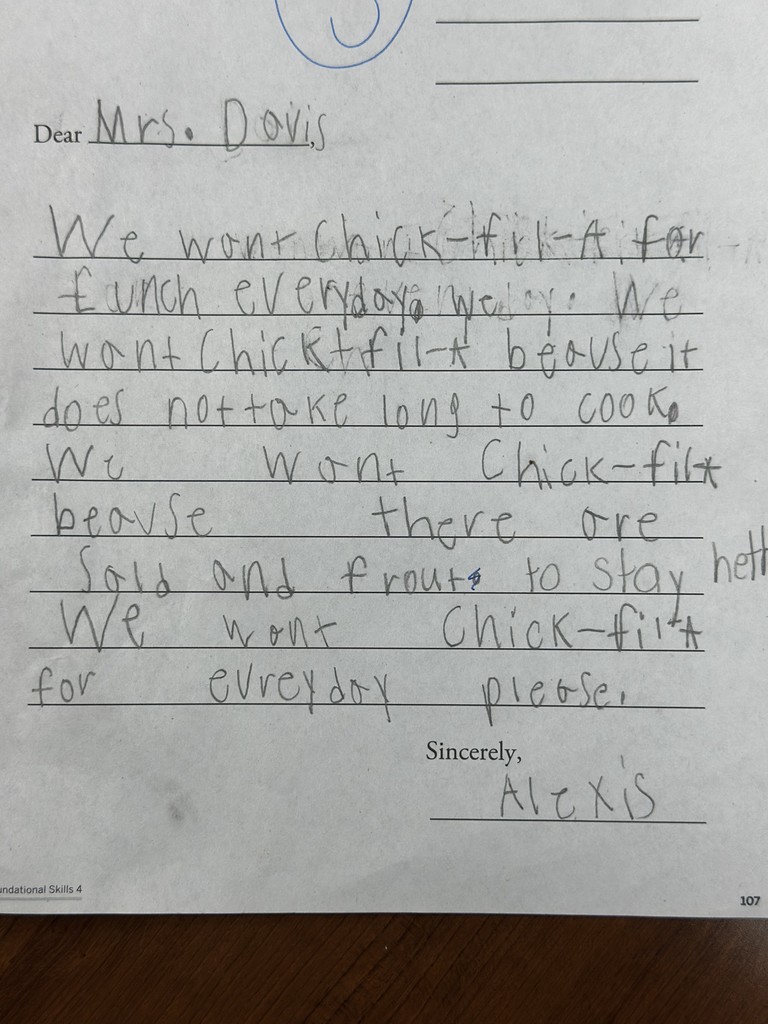 Dear Mrs. Davis,
We want Chick-fil-A for
Lunch everyday. We
want Chick-fil-A beause it
does not take long to cook.
We want Chick-filA
beause there are
Sald and frouts to stay heth
We want Chick-filA
for evreyday please.
Sincerely,
Alexis
undational Skills 4
107